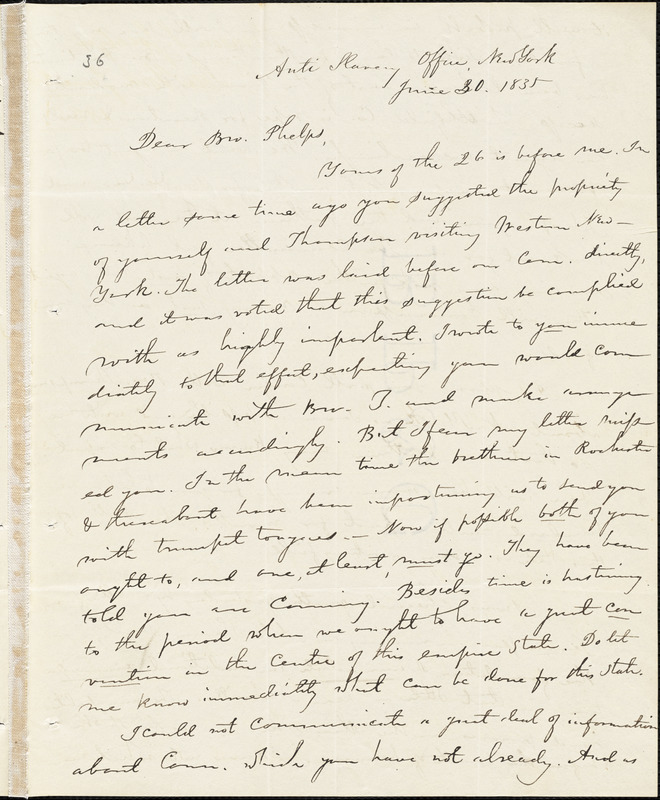 36
Anti Slavery Office, New York
June 30. 1835
Dear Bro. Phelps,
Yours of the 26 is before me. In
a letter some time ago you suggested the propriety
of yourself and Thompson visiting Western New-
York. The letter was laid before our Com. directly,
and it was voted that this suggestion be complied
with as highly important. I wrote to you imme
diately to that effect, expecting you would com
municate with Bro. T. and make arrange
ments accordingly. But I fear my letter miss
ed you. In the mean time the brethren in Rochester
& thereabout have been importuning us to send you
with trumpet tongues — Now if possible both of you
ought to, and one, at least, must go. They have been
told you are coming. Besides time is hastening
to the period when we ought to have a great con
vention in the centre of this empire State. Do let
me know immediately what can be done for this State.
I could not communicate a great deal of information
about Conn. which you have not already. And as